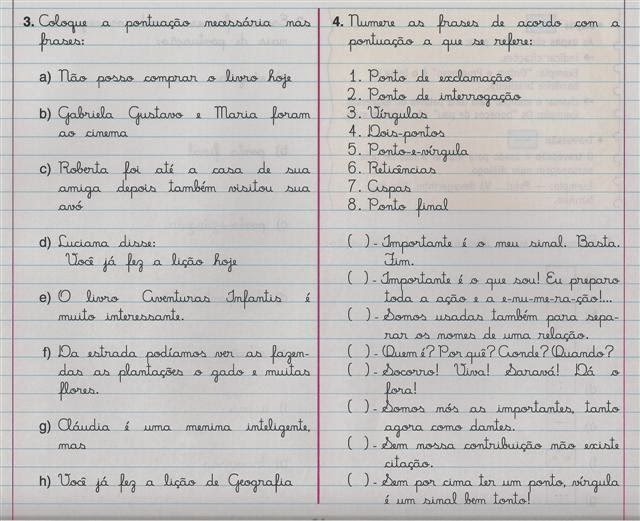 3. Coloque a pontuação necessária nas
frases:
a) Não posso comprar o livro hoje
b) Gabriela Gustavo e Maria foram
ao cinema
c) Roberta foi até a casa de sua
amiga depois também visitou sua
avó
d) Luciana disse:
Você já fez a lição hoje
e) O livro Aventuras Infantis é
muito interessante.
f) Da estrada podíamos ver as fazen-
das as plantações o gado e muitas
flores.
g) Cláudia é uma menina inteligente,
mas
h) Você já fez a lição de Geografia
4. Numere as frases de acordo com a
pontuação a que se refere:
1. Ponto de exclamação
2. Ponto de interrogação
3. Vírgulas
4. Dois-pontos
5. Ponto-e-vírgula
6. Reticências
7. Aspas
8. Ponto final
( ) - Importante é o meu sinal. Basta.
Fim.
( ) - Importante é o que sou! Eu preparo
toda a ação e a e-nu-me-ra-ção!...
( ) - Somos usadas também para sepa-
rar os nomes de uma relação.
( ) - Quem é? Por quê? Aonde? Quando?
( ) - Socorro! Viva! Saravá! Dá o
fora!
( ) - Somos nós as importantes, tanto
agora como dantes.
( ) - Sem nossa contribuição não existe
citação.
( ) - Sem por cima ter um ponto, vírgula
é um sinal bem tonto!